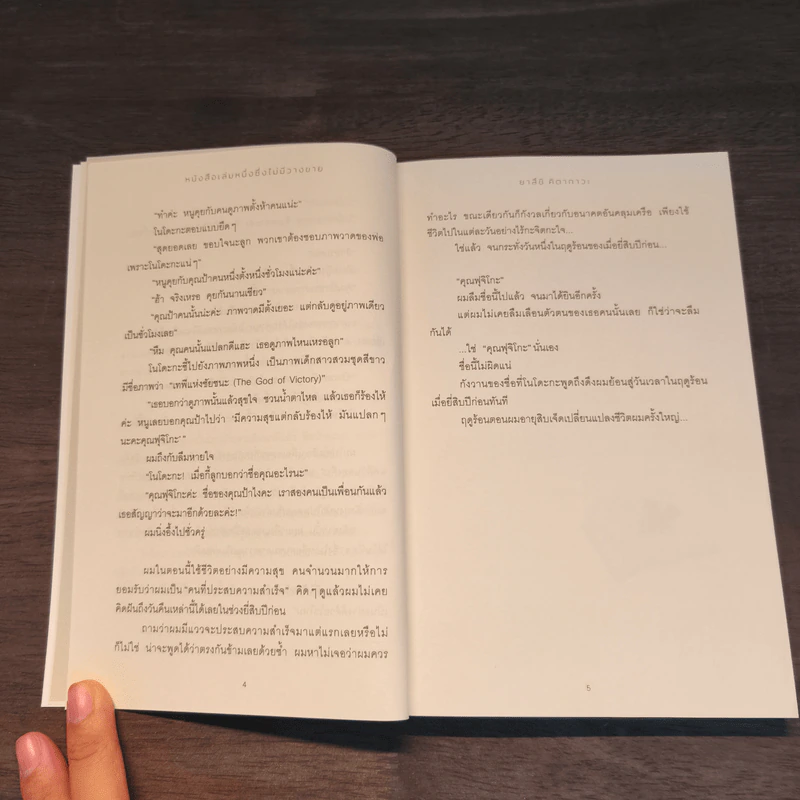 หนังสือเล่มหนึ่งซึ่งไม่มีวางขาย
"ทำค่ะ หนูคุยกับคนดูภาพตั้งห้าคนแน่ะ"
โนโดะกะตอบแบบยืดๆ
"สุดยอดเลย ขอบใจนะลูก พวกเขาต้องชอบภาพวาดของพ่อ
เพราะโนโดะกะแน่ๆ"
"หนูคุยกับคุณป้าคนหนึ่งตั้งหนึ่งชั่วโมงแน่ะค่ะ"
"ฮ้า จริงเหรอ คุยกันนานเชียว"
"คุณป้าคนนั้นน่ะค่ะ ภาพวาดมีตั้งเยอะ แต่กลับดูอยู่ภาพเดียว
เป็นชั่วโมงเลย"
"หืม คุณคนนั้นแปลกดีแฮะ เธอดูภาพไหนเหรอลูก"
โนโดะกะชี้ไปยังภาพภาพหนึ่ง เป็นภาพเด็กสาวสวมชุดสีขาว
มีชื่อภาพว่า "เทพีแห่งชัยชนะ (The God of Victory)"
"เธอบอกว่าดูภาพนั้นแล้วสุขใจ ชวนน้ำตาไหล แล้วเธอก็ร้องไห้
ค่ะ หนูเลยบอกคุณป้าไปว่า 'มีความสุขแต่กลับร้องไห้ มันแปลกๆ
นะคะคุณฟุจิโกะ' "
ผมถึงกับลืมหายใจ
"โนโดะกะ! เมื่อกี้ลูกบอกว่าชื่อคุณอะไรนะ"
"คุณฟุจิโกะค่ะ ชื่อของคุณป้าไงคะ เราสองคนเป็นเพื่อนกันแล้ว
เธอสัญญาว่าจะมาอีกด้วยละค่ะ!"
ผมนิ่งอึ้งไปชั่วครู่
ผมในตอนนี้ใช้ชีวิตอย่างมีความสุข คนจำนวนมากให้การ
ยอมรับว่าผมเป็น "คนที่ประสบความสำเร็จ" คิดๆ ดูแล้วผมไม่เคย
คิดฝันถึงวันคืนเหล่านี้ได้เลยในช่วงยี่สิบปีก่อน
ถามว่าผมมีแววจะประสบความสำเร็จมาแต่แรกเลยหรือไม่
ก็ไม่ใช่ น่าจะพูดได้ว่าตรงกันข้ามเลยด้วยซ้ำ ผมหาไม่เจอว่าผมควร
4
ยาสึชิ คิตากาวะ
ทำอะไร ขณะเดียวกันก็กังวลเกี่ยวกับอนาคตอันคลุมเครือ เพียงใช้
ชีวิตไปในแต่ละวันอย่างไร้กะจิตกะใจ...
ใช่แล้ว จนกระทั่งวันหนึ่งในฤดูร้อนของเมื่อยี่สิบปีก่อน...
"คุณฟุจิโกะ"
ผมลืมชื่อนี้ไปแล้ว จนมาได้ยินอีกครั้ง
แต่ผมไม่เคยลืมเลือนตัวตนของเธอคนนั้นเลย ก็ใช่ว่าจะลืม
กันได้
...ใช่ "คุณฟุจิโกะ" นั่นเอง
ชื่อนี้ไม่ผิดแน่
กังวานของชื่อที่โนโดะกะพูดถึงดึงผมย้อนสู่วันเวลาในฤดูร้อน
เมื่อยี่สิบปีก่อนทันที
ฤดูร้อนตอนผมอายุสิบเจ็ดเปลี่ยนแปลงชีวิตผมครั้งใหญ่...
5